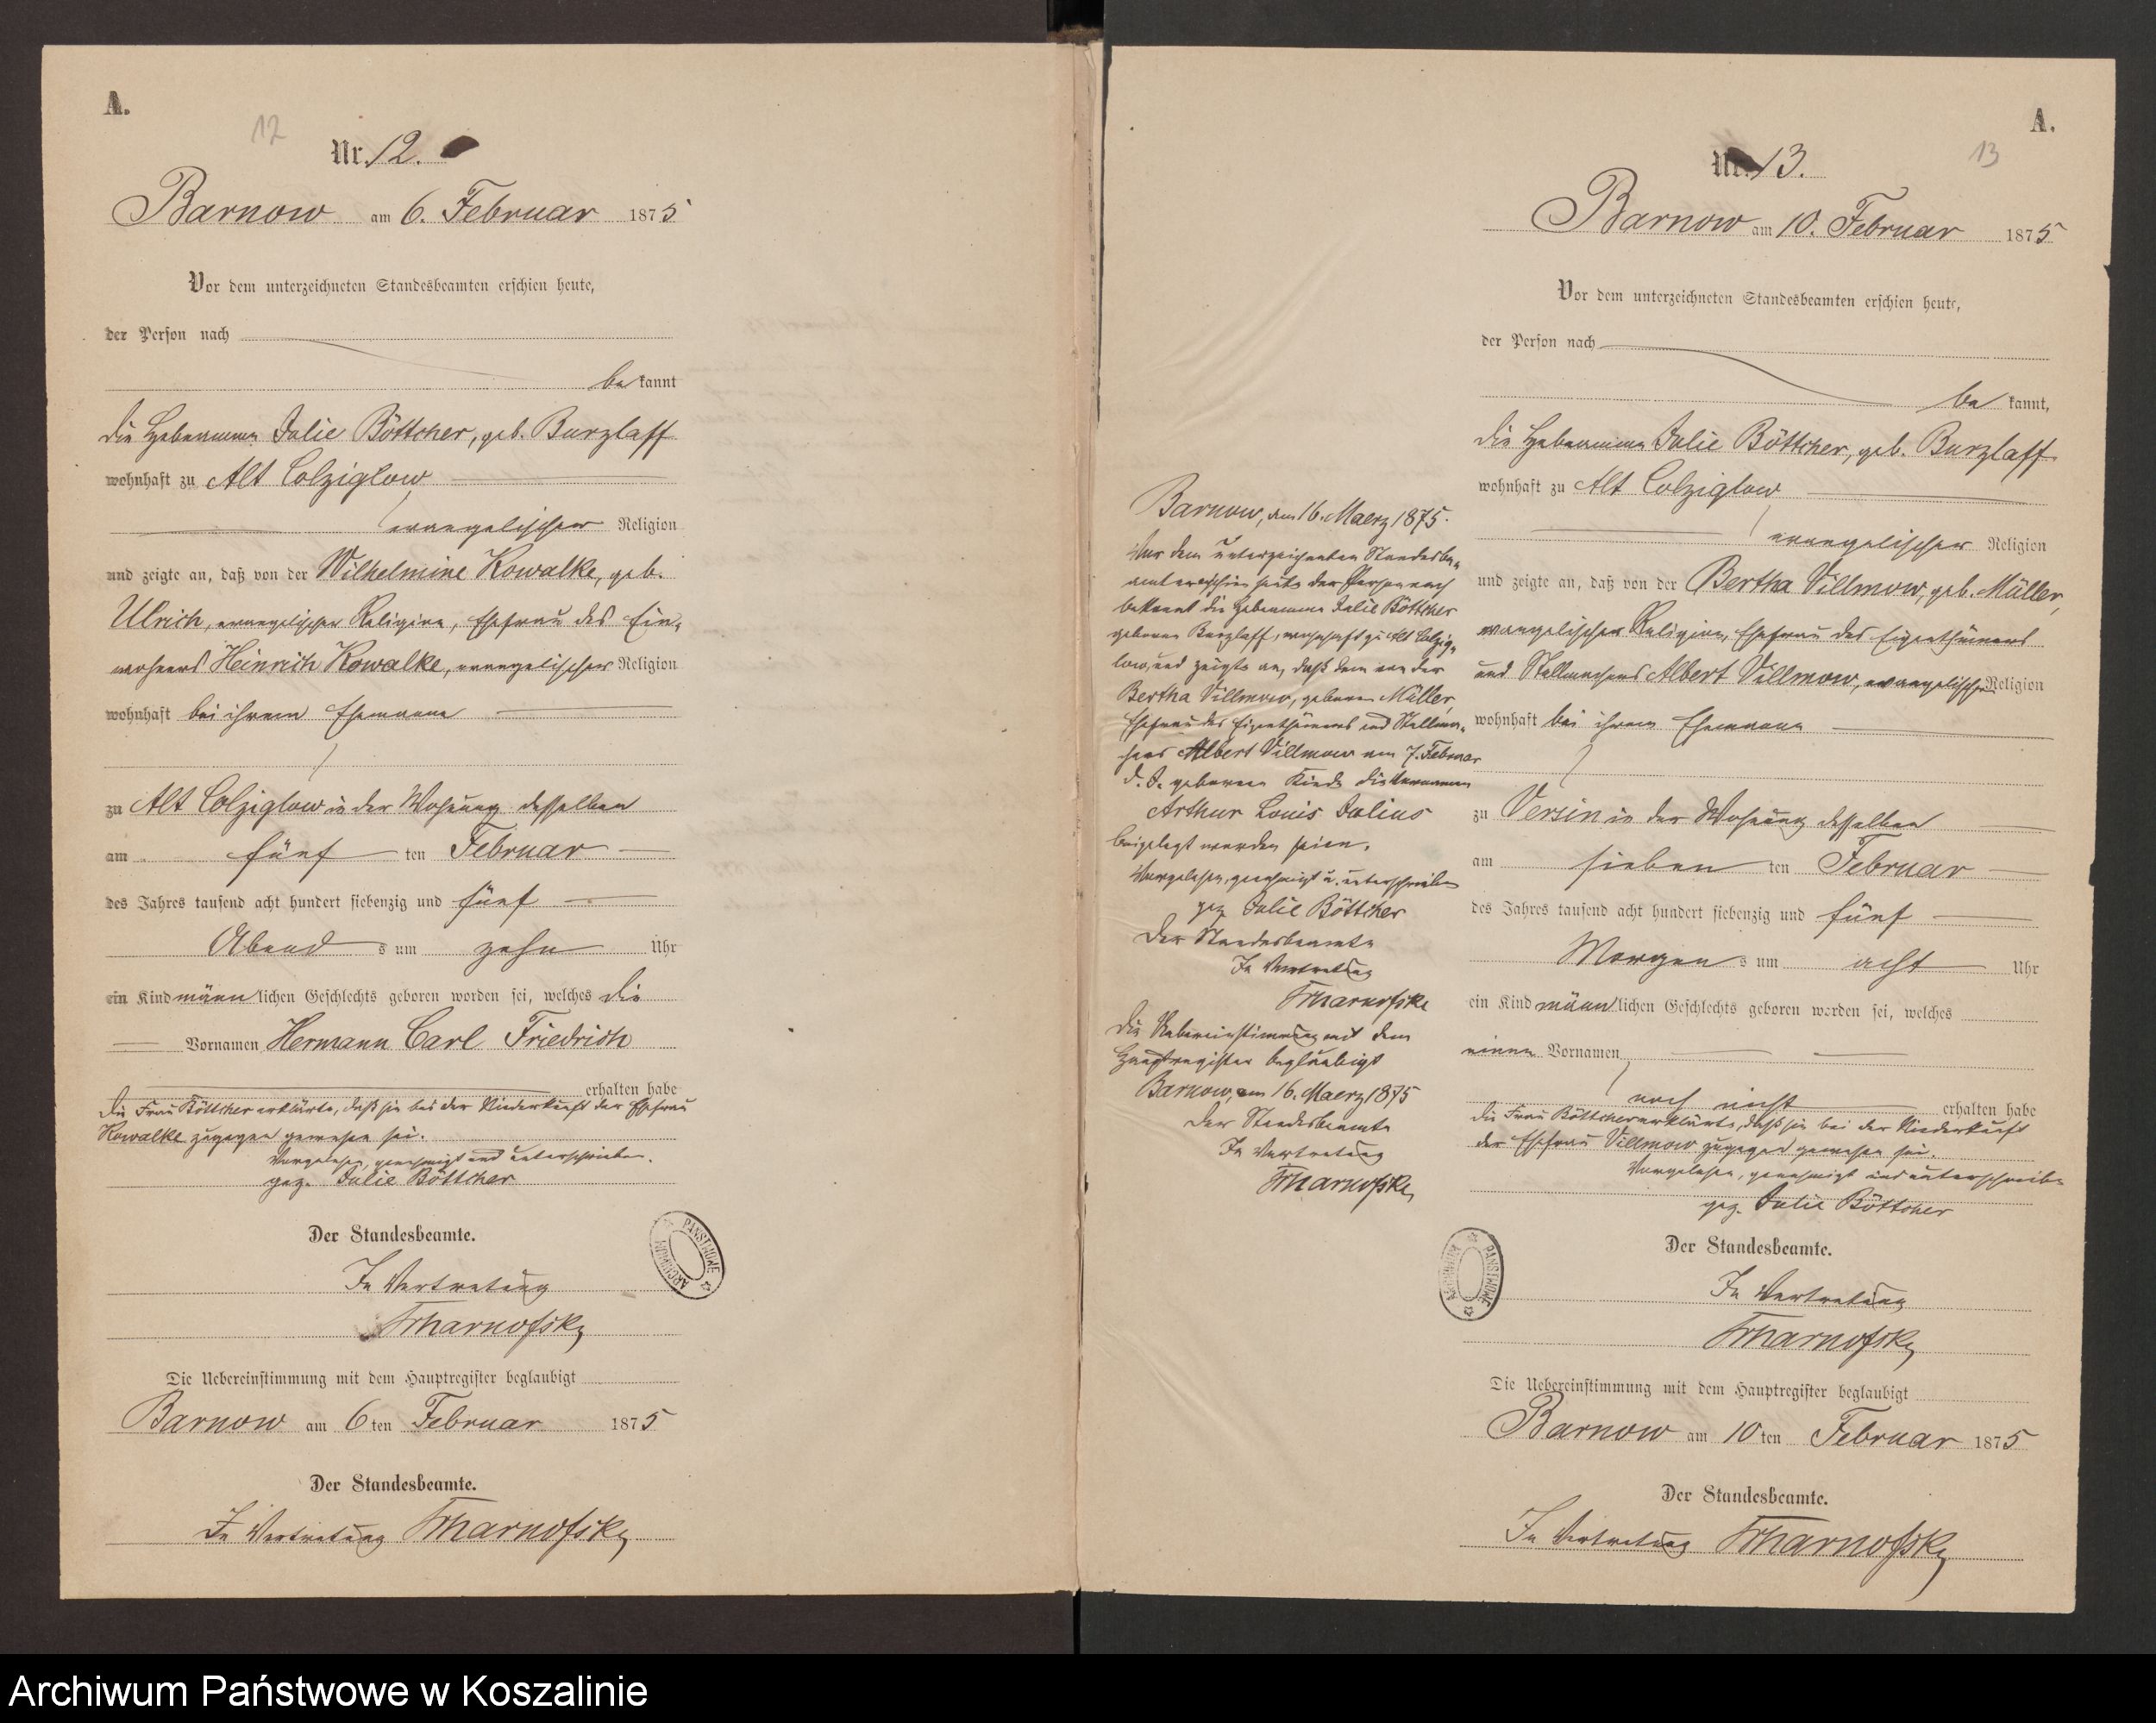 A.
12
Nr. 12.
Barnow am 6. Februar 1875
Vor dem unterzeichneten Standesbeamten erschien heute,
der Person nach
bekannt
die Hebamme Julie Böttcher, geb. Burzlaff
wohnhaft zu Alt Colziglow
evangelischer Religion
und zeigte an, daß von der Wilhelmine Kowalke, geb.
Ulrich, evangelischer Religion, Ehefrau des Ein-
wohners Heinrich Kowalke, evangelischer Religion
wohnhaft bei ihrem Ehemanne
zu Alt Colziglow in der Wohnung desselben
am fünf ten Februar
des Jahres tausend acht hundert siebenzig und fünf
Abends um zehn Uhr
ein Kind männlichen Geschlechts geboren worden sei, welches die
Vornamen Hermann Carl Friedrich
erhalten habe
Die Frau Böttcher erklärte, daß sie bei der Niederkunft der Ehefrau
Kowalke zugegen gewesen sei.
Vorgelesen, genehmigt und unterschrieben.
gez. Julie Böttcher
Der Standesbeamte.
In Vertretung
Die Uebereinstimmung mit dem Hauptregister beglaubigt
Barnow am 6ten Februar 1875
Der Standesbeamte.
In Vertretung
ARCHIWUM PAŃSTWOWE
Barnow, den 16. Maerz 1875.
Vor dem unterzeichneten Standesbe-
amten erschien heute der Person nach
bekannt die Hebamme Julie Böttcher
geborene Burzlaff, wohnhaft zu Alt Colzig-
low und zeigte an, daß dem von der
Bertha Villmow, geborene Müller,
Ehefrau des Eigenthümers und Stellma-
chers Albert Villmow am 7. Februar
d. J. geborenen Kinde die Vornamen
Arthur Louis Julius
beigelegt worden seien.
Vorgelesen, genehmigt u. unterschrieben
gez. Julie Böttcher
Der Standesbeamte
In Vertretung
Die Uebereinstimmung mit dem
Hauptregister beglaubigt
Barnow, am 16. Maerz 1875
Der Standesbeamte
In Vertretung
A.
13
Nr. 13.
Barnow am 10. Februar 1875
Vor dem unterzeichneten Standesbeamten erschien heute,
der Person nach
bekannt,
die Hebamme Julie Böttcher, geb. Burzlaff
wohnhaft zu Alt Colziglow
evangelischer Religion
und zeigte an, daß von der Bertha Villmow, geb. Müller,
evangelischer Religion, Ehefrau des Eigenthümers
und Stellmachers Albert Villmow, evangelischer Religion
wohnhaft bei ihrem Ehemanne
zu Versin in der Wohnung desselben
am sieben ten Februar
des Jahres tausend acht hundert siebenzig und fünf
Morgens um acht Uhr
ein Kind männlichen Geschlechts geboren worden sei, welches
einen Vornamen
noch nicht erhalten habe
Die Frau Böttcher erklärte, daß sie bei der Niederkunft
der Ehefrau Villmow zugegen gewesen sei.
Vorgelesen, genehmigt und unterschrieben
gez. Julie Böttcher
Der Standesbeamte.
In Vertretung
Die Uebereinstimmung mit dem Hauptregister beglaubigt
Barnow am 10ten Februar 1875
Der Standesbeamte.
In Vertretung
ARCHIWUM PAŃSTWOWE
Archiwum Państwowe w Koszalinie